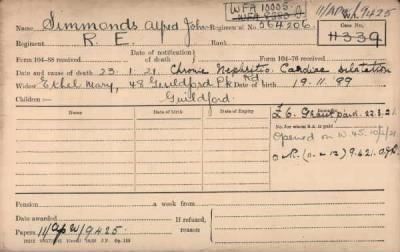 WFA 10005.
11/AP/W/9425
Name Simmonds Alfred John Regimental No. 564206
11339
Regiment R. E. Rank
Date of notification
Form 104-88 received of death Form 104-76 received
Date and cause of death 23.1.21. Chronic Nephritis. Cardiac dilatation
Widow Ethel Mary, 48 Guildford Pk Rd Date of birth 19.11.89
Children:— Guildford.
Date of birth Date of expiry Date of birth Date of expiry
£6. Grant paid. 22.3.21.
No. for whom S.A. is paid
Opened on W.45. 10/2/21
Pension a week from
Date awarded If refused,
reason
Papers 11/AP/W/9425